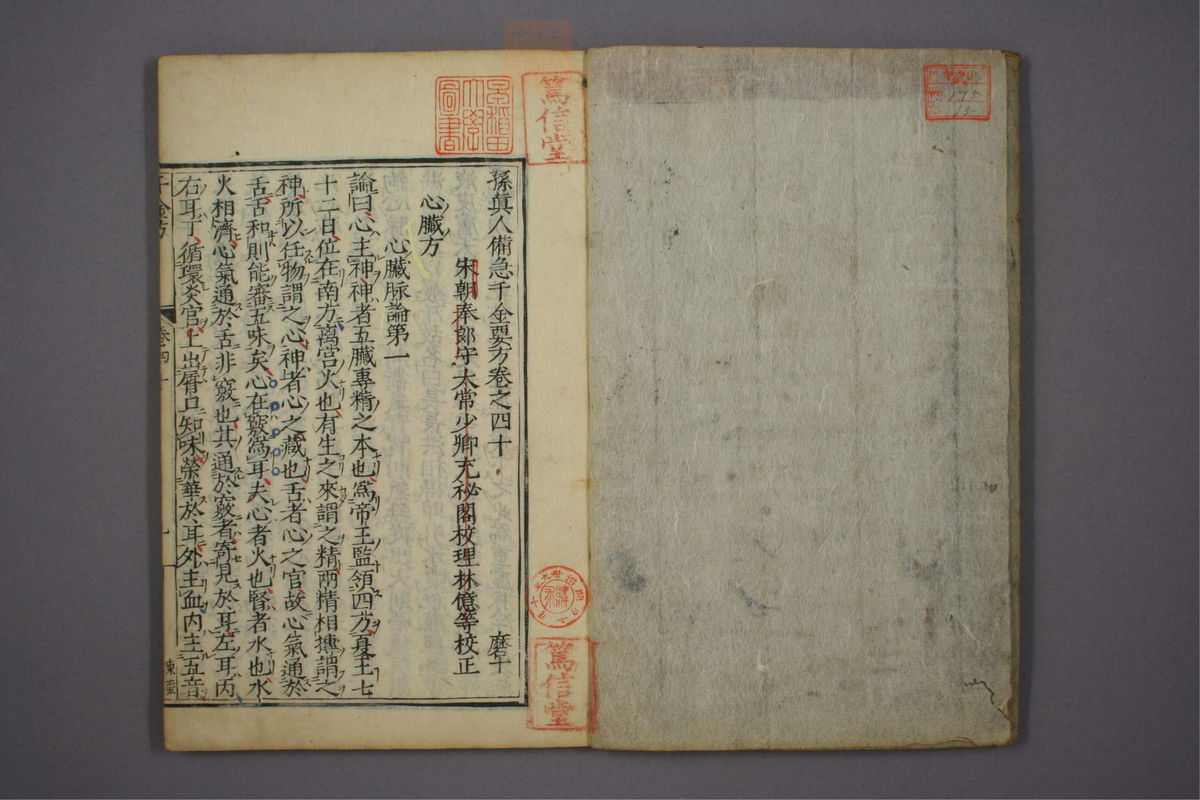 孫眞人備急千金要方卷之四十 磨二
宋朝奉郎守太常少卿充秘閣校理林億等校正
心臟方
心臟脉論第一
論曰心主神神者五臟專精之本也爲帝王監領四方夏王七
十二日位在南方离宫火也有生之來謂之精兩精相摶謂之
神所以任物謂之心神者心之藏也舌者心之官故心氣通於
舌舌和則能審五味矣心在竅爲耳夫心者火也腎者水也水
火相濟心氣通於舌非竅也其通於竅者寄見於耳左耳丙
右耳丁循環炎宫上出脣口知味榮華於耳外主血内主五音
千金方
卷四十
一
篤信堂
篤信堂
早稻田大學圖書
175
15